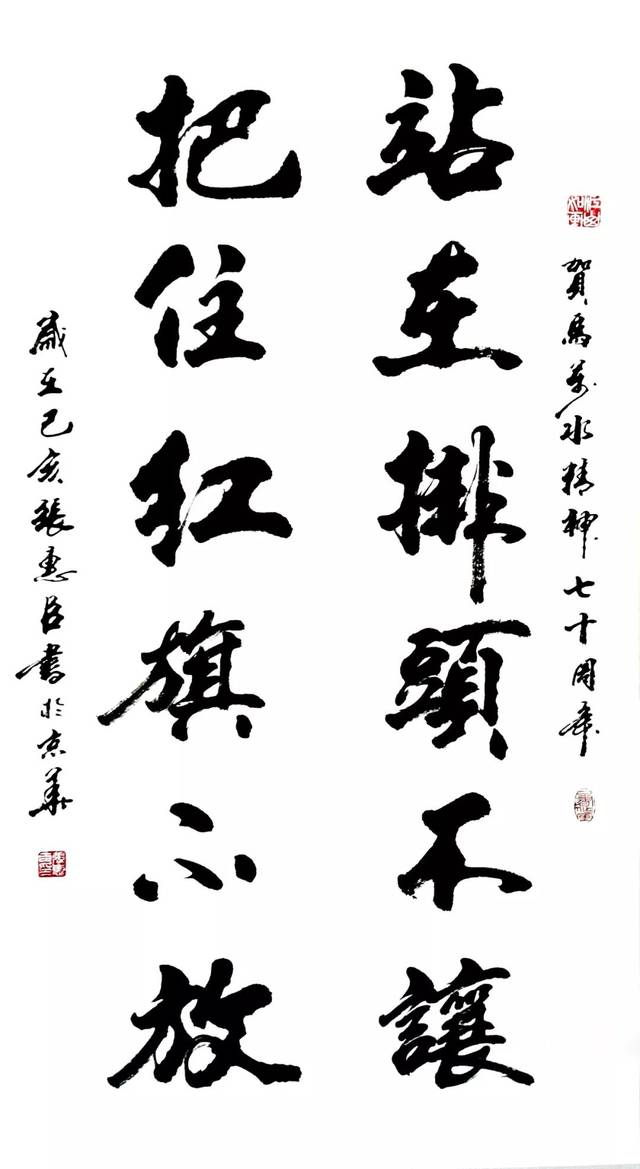 賀馬萬水精神七十周年
站在排頭不讓
把住紅旗不放
歲在己亥張惠臣書於京華